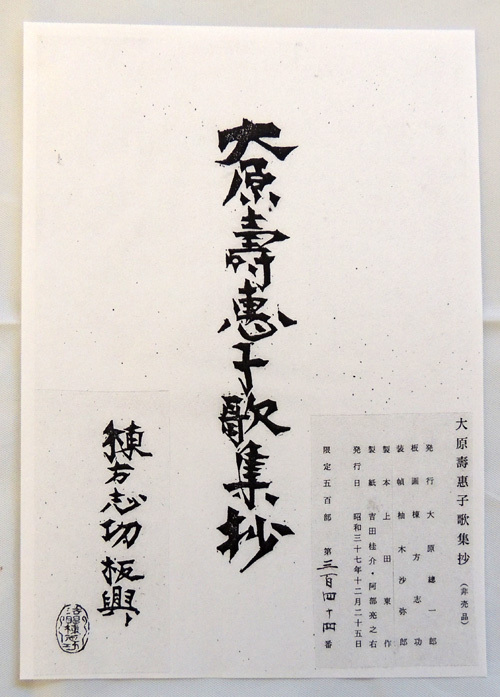 大原壽惠子歌集抄
大原壽惠子歌集抄（非売品）
発行 大原總一郎
板画 棟方志功
装幀 柚木沙弥郎
製本 上田東作
製紙 吉田桂介・阿部亮之右
発行日 昭和三十七年十二月二十五日
限定五百部 第三百四十四番
棟方志功板興